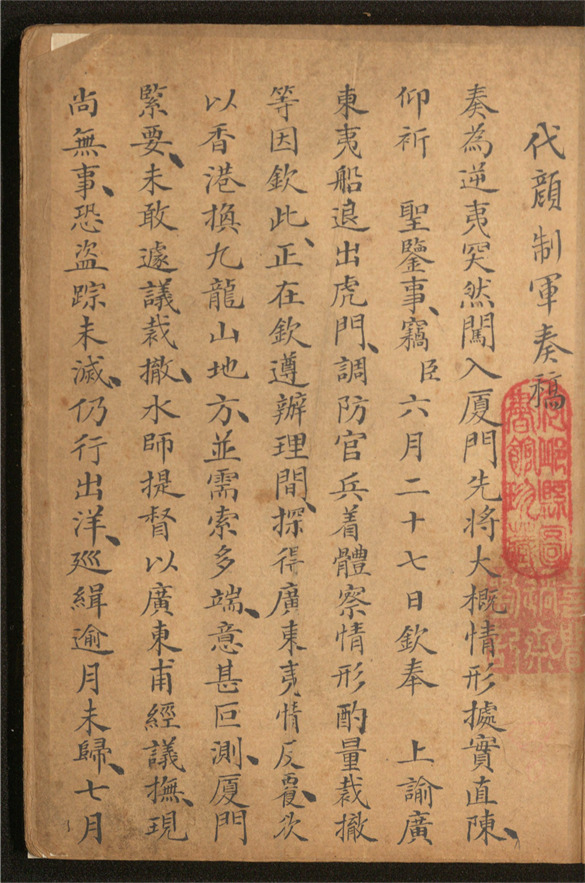 代顏制軍奏稿
奏為逆夷突然闖入厦門先將大概情形據實直陳、
仰祈　聖鑒事、竊臣六月二十七日欽奉　上諭廣
東夷船退出虎門、調防官兵着體察情形酌量裁撤
等因欽此、正在欽遵辦理間、探得廣東夷情反覆、欲
以香港換九龍山地方、並需索多端、意甚叵測、厦門
緊要、未敢遽議裁撤、水師提督以廣東甫經議撫、現
尚無事、恐盜踪未滅、仍行出洋、廵緝逾月未歸、七月